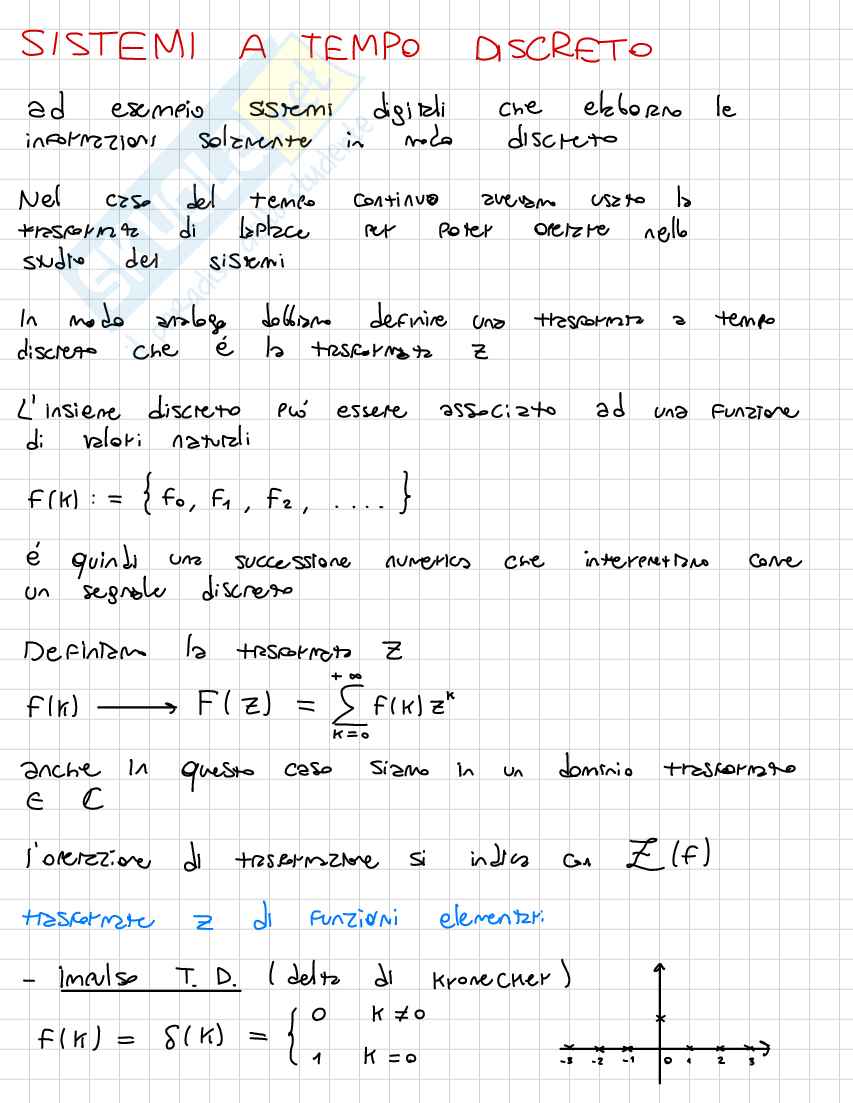 SISTEMI A TEMPO DISCRETO
ad esempio sistemi digitali che elaborano le
informazioni solamente in modo discreto
Nel caso del tempo continuo avevamo usato la
trasformata di laplace per poter operare nello
studio dei sistemi
In modo analogo dobbiamo definire una trasformata a tempo
discreto che é la trasformata Z
L'insieme discreto puó essere associato ad una funzione
di valori naturali
f(k) := { f₀, f₁, f₂, .... }
é quindi una successione numerica che interpretiamo come
un segnale discreto
Definiamo la trasformata Z
+∞
f(k) ⟶ F(z) = ∑ f(k) zᵏ
k=0
anche in questo caso siamo in un dominio trasformato
∈ C
l'operazione di trasformazione si indica con Z(f)
trasformate z di funzioni elementari
- Impulso T. D. (delta di Kronecher)
f(k) = δ(k) = { 0 k ≠ 0
1 k = 0
-3 -2 -1 0 1 2 3
SKUOLA.net